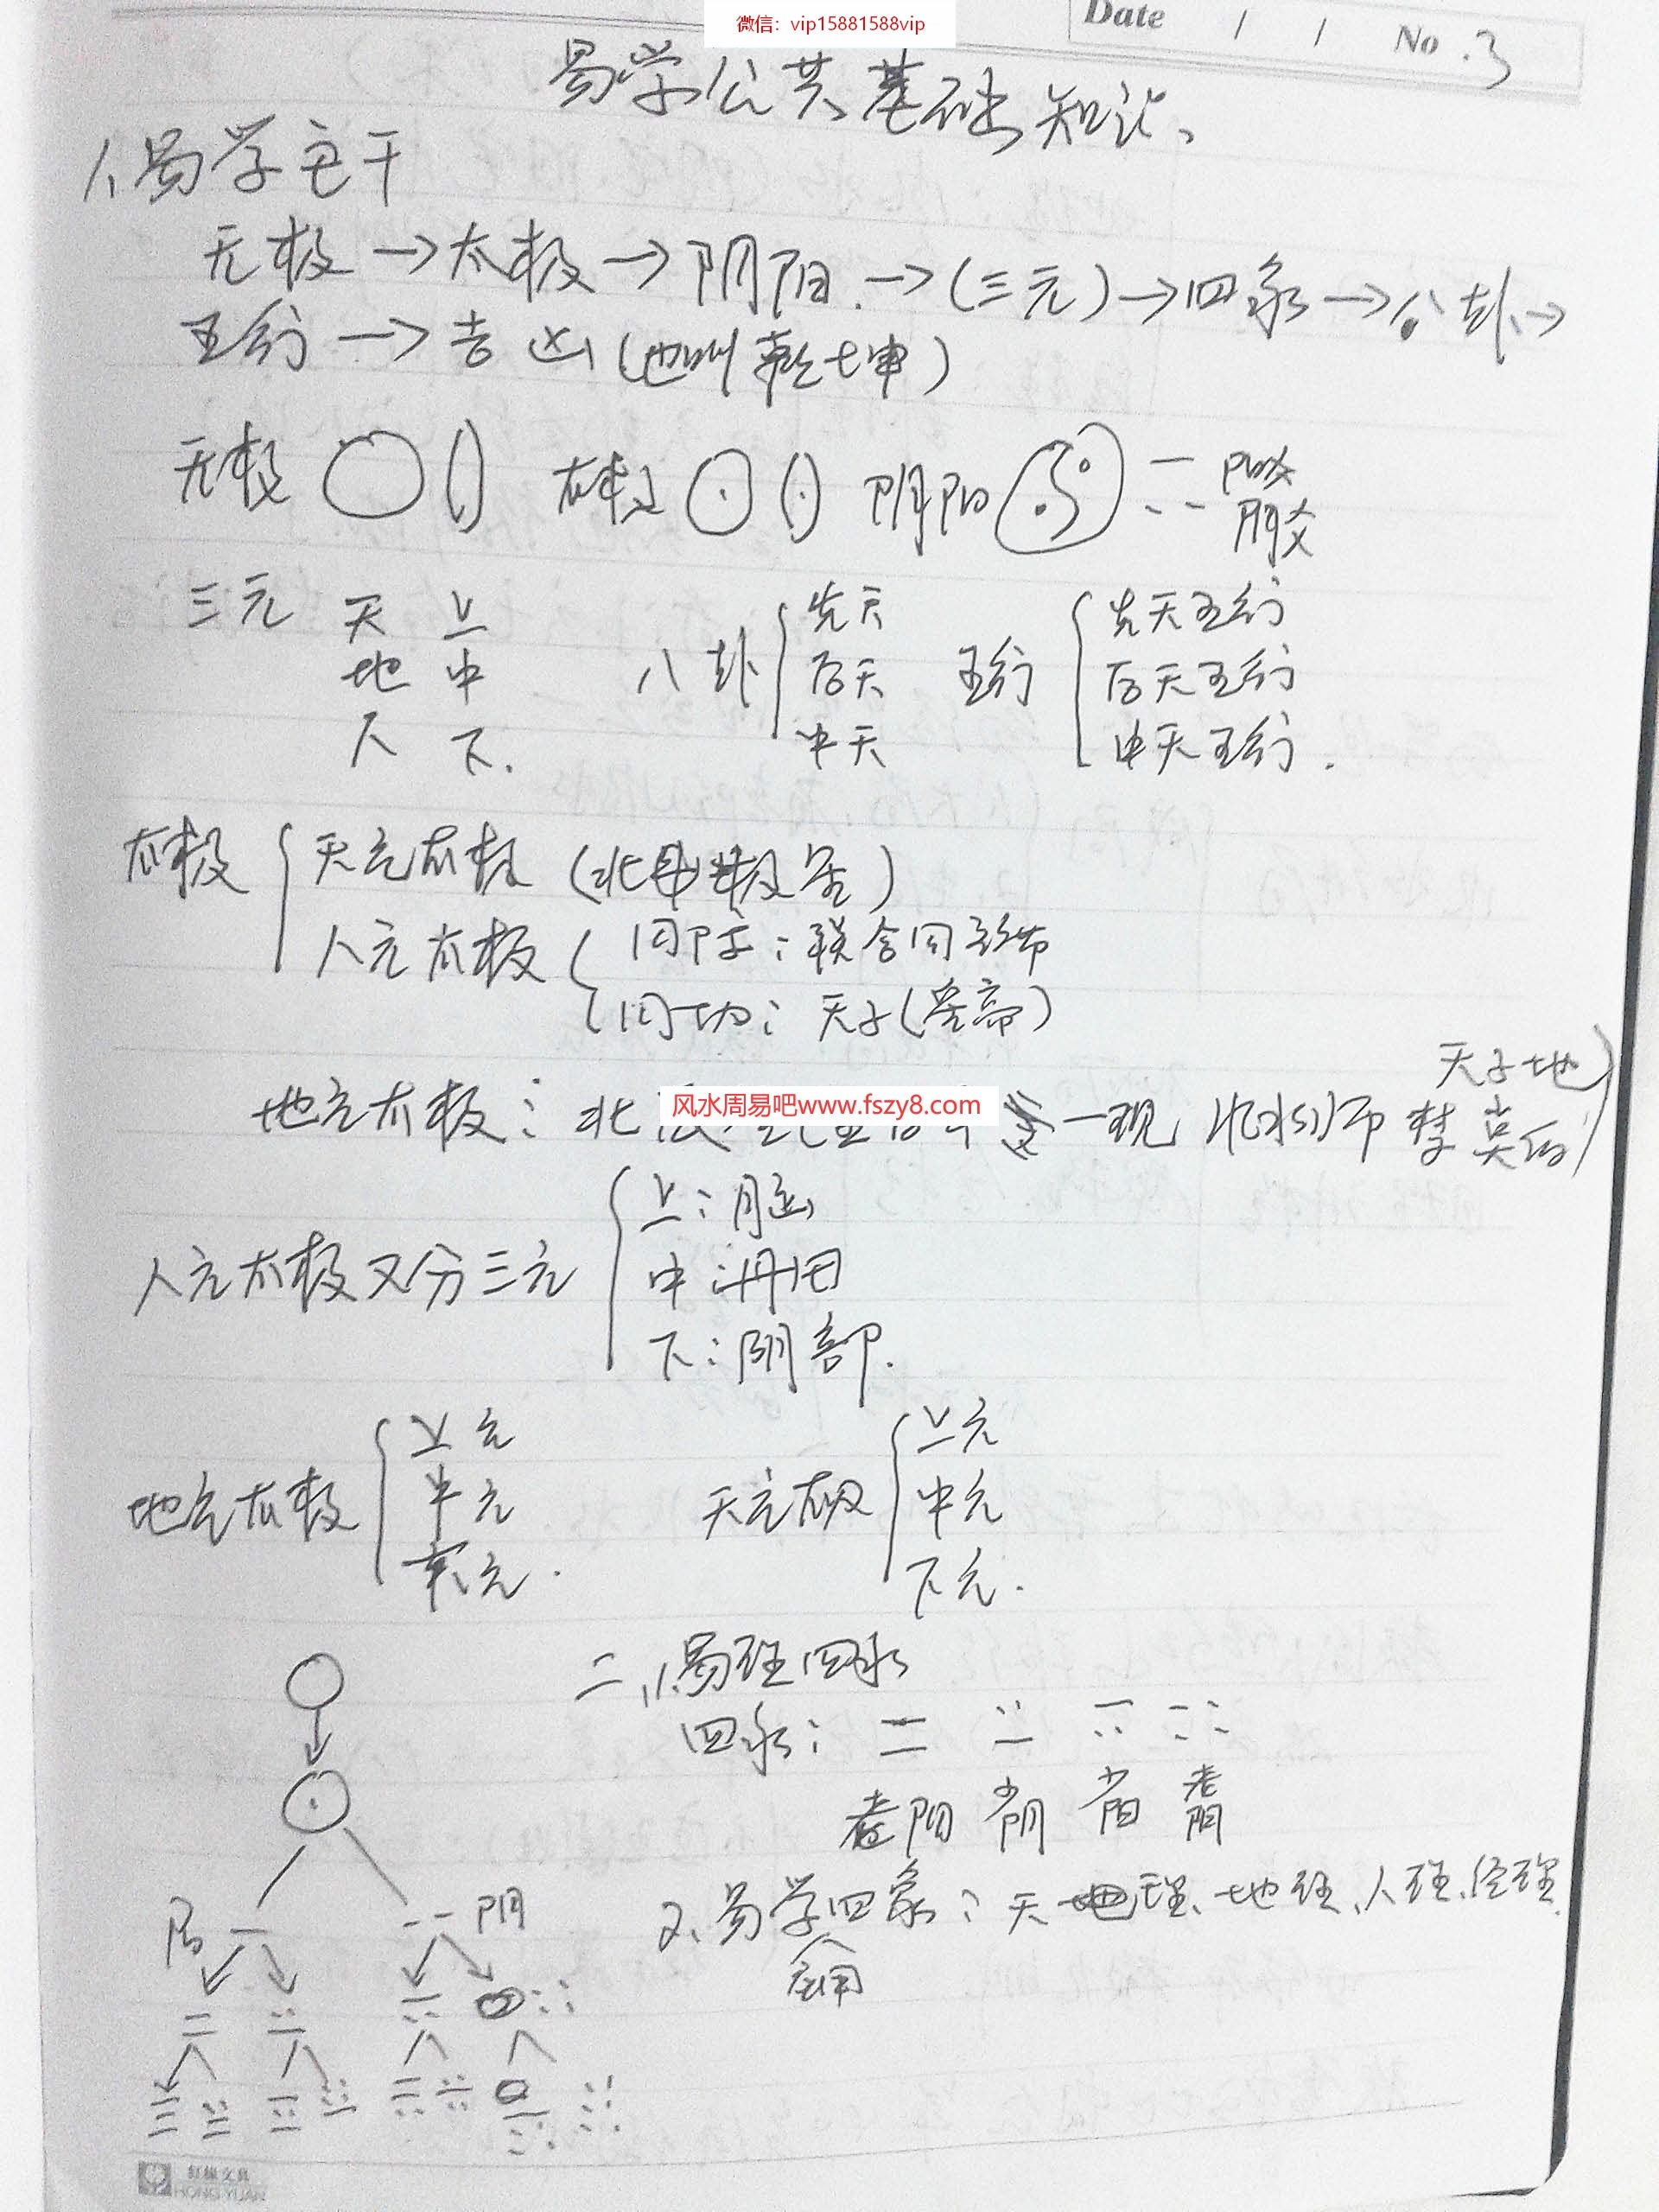 微信：vip15881588vip
Date / / No .3
易学公共基础知识、
1、易学主干
无极→太极→阴阳.→(三元)→四象→八卦、→
五行→吉凶(也叫乾坤)
无极 太极 阴阳 阳爻
阴爻
三元 天 上 八卦 先天 五行 先天五行
地 中 后天 后天五行
人 下. 中天 中天五行.
太极 天元太极 (北极星)
人元太极 同陆：联合国
同功：天子(总部)
天子地
地元太极：北 一现
风水周易吧www.fszy8.com
人元太极又分三元 上：脑
中：丹田
下：阴部.
地元太极 上元 天元太极 上元
中元 中元
下元. 下元.
二、1、易理四象
四象：
老阳 少阴 少阳 老阴
2、易学四象：天理、地理、人理、经理.
应用
阳 阴
红缘文具
HONG YUAN